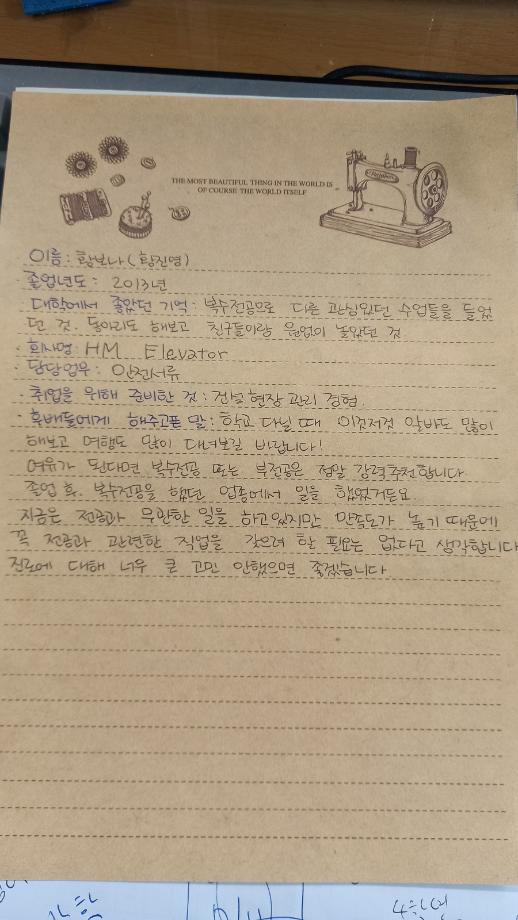 THE MOST BEAUTIFUL THING IN THE WORLD IS
OF COURSE THE WORLD ITSELF
이름 : 황보나 ( 황진영 )
· 졸업년도 : 2013년
· 대학에서 좋았던 기억 : 복수전공으로 다른 관심있던 수업들을 들었
던 것. 동아리도 해보고 친구들이랑 원없이 놀았던 것
· 회사명 : HM Elevator
· 담당업무 : 안전서류
· 취업을 위해 준비한 것 : 건설현장 관리 경험.
· 후배들에게 해주고픈 말 : 학교 다닐 때 이것저것 알바도 많이
해보고 여행도 많이 다녀보길 바랍니다!
여유가 된다면 복수전공 또는 부전공은 정말 강력추천합니다
졸업 후. 복수전공을 했던 업종에서 일을 했었거든요
지금은 전공과 무관한 일을 하고있지만 만족도가 높기 때문에!
꼭 전공과 관련한 직업을 갖으려 할 필요는 없다고 생각합니다
진로에 대해 너무 큰 고민 안했으면 좋겠습니다